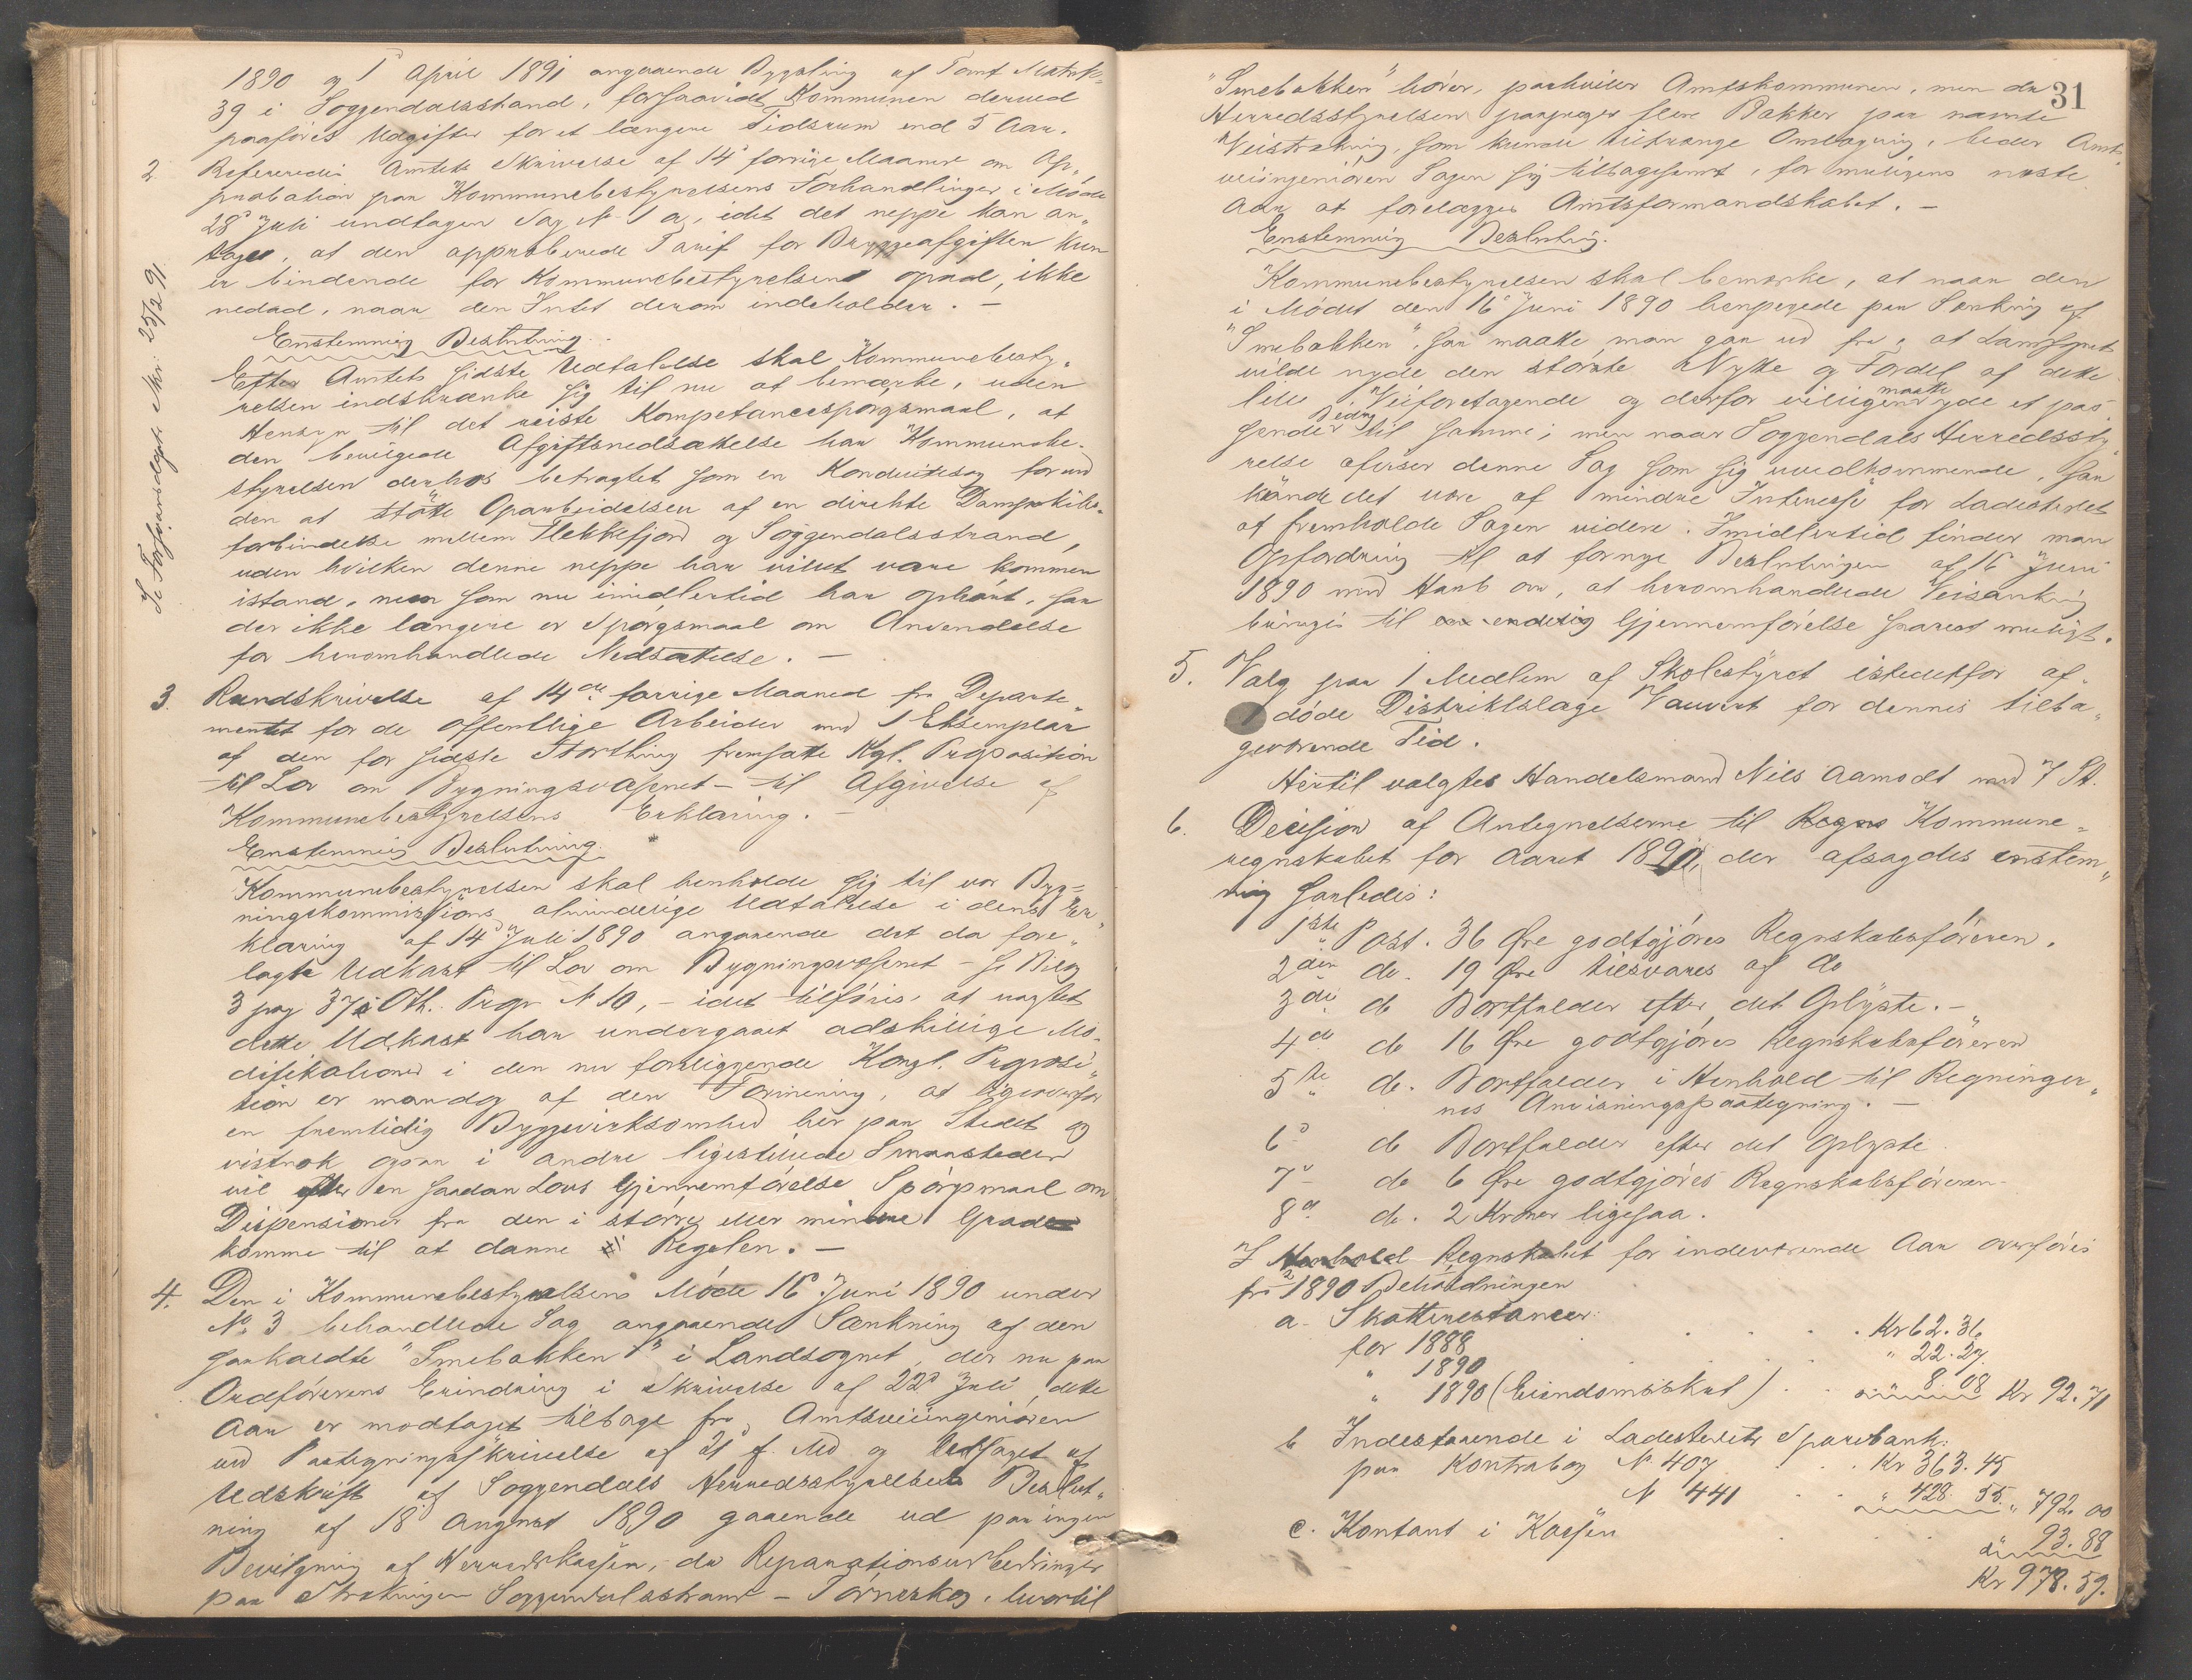 1890 og 1ᵈ April 1891 angaaende Bygsling af Tomt Matrk.
39 i Soggendalsstrand, forsaavidt Kommunen derved
paaføres Udgifter for et længere Tidsrum end 5 Aar.
2. Refereredes Amtets Skrivelse af 14ᵈ forrige Maaned om Ap„
probation paa Kommunebestyrelsens Forhandlinger i Møde
28ᵈ Juli undtagen Sag N. 1 a, idet det neppe kan an„
tages, at den approberede Tarif for Bryggeafgiften kun
er bindende for Kommunebestyrelsen opad, ikke
nedad, naar den Intet derom indeholder. —
Enstemmig Beslutning.
Efter Amtets sidste Udtalelse skal Kommunebesty„
relsen indskrænke sig til nu at bemærke, uden
Hensyn til det reiste Kompetancespørgsmaal, at
den bevilgede Afgiftsnedsættelse har Kommunebe„
styrelsen derhos betragtet som en Konduitesag forud
den at støtte Oparbeidelsen af en direkte Dampskibs„
forbindelse mellem Flekkefjord og Soggendalsstrand,
uden hvilken denne neppe har villet være kommen
istand, men som nu imidlertid har ophørt, saa
der ikke længere er Spørgsmaal om Anvendelse
for heromhandlede Nedsættelse. —
Se Forsvarsdept. Skr. 25/2 91.
3. Rundskrivelse af 14ᵈᵉ forrige Maaned fra Departe„
mentet for de offentlige Arbeider med 1 Eksemplar
af den for sidste Storthing fremsatte Kgl. Proposition
til Lov om Bygningsvæsenet – til Afgivelse af
Kommunebestyrelsens Erklæring. —
Enstemmig Beslutning.
Kommunebestyrelsen skal henholde sig til vor Byg=
ningskommissions almindelige Udtalelse i dens Er„
klæring af 14ᵈ Juli 1890 angaaende det da fore„
lagte Udkast til Lov om Bygningsvæsenet – se Bilag
3 pag 37 i Oth. Prop N 10, – idet tilføies, at uagtet
dette Udkast har undergaaet adskillige Mo„
difikationer i den nu foreliggende Kongl. Proposi„
tion er man dog af den Formening, at ligeoverfor
en fremtidig Byggevirksomhed her paa Stedet og
vistnok ogsaa i andre ligestillede Smaasteder
vil efter en saadan Lovs Gjennemførelse Spørgsmaal om
Dispensioner fra den i større eller mindre Grad
komme til at danne Regelen. —
4. Den i Kommunebestyrelsens Møde 16 Juni 1890 under
No 3 behandlede Sag angaaende Sænkning af den
saakaldte "Smebakken" i Landsognet, der nu paa
Ordførerens Erindring i Skrivelse af 22ᵈ Juli dette
Aar er modtaget tilbage fra Amtsveiingeniøren
ved Paategningsskrivelse af 31ᵈ f. Md og ledsaget af
Udskrift af Soggendals Herredsstyrelses Beslut„
ning af 18ᵈ August 1890 gaaende ud paa ingen
Bevilgning af Herredskassen, da Reparationsudbedringer
paa Strækningen Soggendalsstrand – Tørneskog, hvortil
31
"Smebakken" hører, paahviler Amtskommunen, men da
Herredsstyrelsen paapeger flere Bakker paa nævnte
Veistrækning, som kunde tiltrænge Omlægning, beder Amts„
veiingeniøren Sagen sig tilbagesendt, for muligens næste
Aar at forelægges Amtsformandskabet. —
Enstemmig Beslutning.
Kommunebestyrelsen skal bemærke, at naar den
i Mødet den 16ᵈ Juni 1890 henpegede paa Sænkning af
"Smebakken", saa maatte man gaa ud fra, at Landsognet
vilde nyde den største Nytte og Fordel af dette
lille Veiforetagende og derfor villigen maatte yde et pas„
sende Bidrag til samme; men naar Soggendals Herredssty„
relse afviser denne Sag som sig uvedkommende, saa
kunde det være af mindre Interesse for Ladestedet
at fremholde Sagen videre. Imidlertid finder man
Opfordring til at fornye Beslutningen af 16 Juni
1890 med Haab om, at heromhandlede Veisænkning
bringes til en endelig Gjennemførelse snarest muligt.
5. Valg paa 1 Medlem af Skolestyret istedetfor af„
døde Distriktslæge Vauvert for dennes tilba„
geværende Tid.
Hertil valgtes Handelsmand Nils Aamodt med 7 St.
6. Decision af Antegnelserne til Regns Kommune„
regnskabet for Aaret 1890, der afsagdes enstem„
mig saaledes:
1ste Post. 36 Øre godtgjøres Regnskabsføreren.
2den do. 19 Øre tilsvares af do
3die do Bortfalder efter det Oplyste. —
4de do 16 Øre godtgjøres Regnskabsføreren
5te do. Bortfalder i Henhold til Regninger„
nes Anvisningspaategning. —
6ᵈ do Bortfalder efter det Oplyste
7ᵈ do 6 Øre godtgjøres Regnskabsføreren
8ᵈ do. 2 Kroner ligesaa.
I Henhold Regnskabet for indeværende Aar overføres
fra 1890 Beholdningen
a. Skatterestancer:
for 1888 . . . . Kr 62. 36
" 1890 . . . " 22. 27
" 1890 (Eiendomsskat) . . " 8. 08 Kr 92. 71
b Indestaaende i Ladestedets Sparebank:
paa Kontrabog N. 407 . . Kr 363. 45
N 441 . . " 428. 55 " 792. 00
c. Kontant i Kassen . . . " 93. 88
Kr 978. 59.